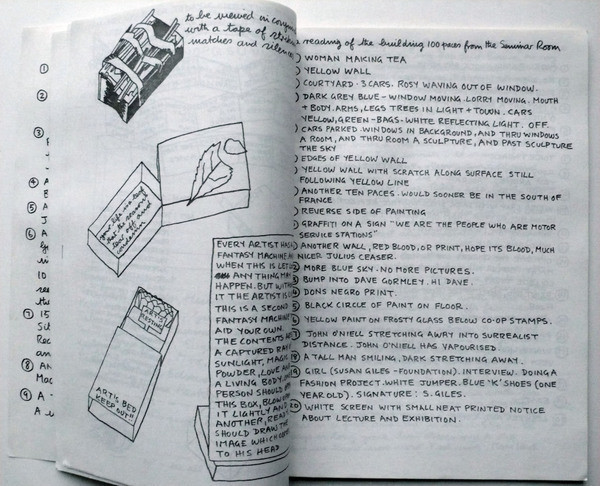 to be viewed in conj
with a tape of
matches and silence
your life instead
EVERY ARTIST HAS A
FANTASY MACHINE
WHEN THIS IS LET
ANY THING MAY
HAPPEN. BUT WITH
IT THE ARTIST IS
THIS IS A SECOND
FANTASY MACHINE
AID YOUR OWN.
THE CONTENTS
A CAPTURED BA
SUNLIGHT, MAGIC
POWDER, LOVE AN
A LIVING BODY.
PERSON SHOULD
THIS BOX, BLOW
IT LIGHTLY AND
ANOTHER, READ
SHOULD DRAW THE
IMAGE WHICH
TO HIS HEAD
ART'S
RESTING
ART'S BED
KEEP OUT!!
①
②
③
④ A
⑤ A
⑥ A
10
⑦ 15
⑧
⑨ A
a reading of the building 100 paces from the Seminar Room
WOMAN MAKING TEA
YELLOW WALL
COURTYARD. 3 CARS. ROSY WAVING OUT OF WINDOW.
DARK GREY BLUE - WINDOW MOVING. LORRY MOVING. MOUTH
+ BODY. ARMS, LEGS TREES IN LIGHT + TOWN. CARS
YELLOW, GREEN - BAGS - WHITE REFLECTING LIGHT. OFF.
CARS PARKED. WINDOWS IN BACKGROUND, AND THRU WINDOWS
A ROOM, AND THRU ROOM A SCULPTURE, AND PAST SCULPTURE
THE SKY
EDGES OF YELLOW WALL
YELLOW WALL WITH SCRATCH ALONG SURFACE STILL
FOLLOWING YELLOW LINE
ANOTHER TEN PACES. WOULD SOONER BE IN THE SOUTH OF
FRANCE
REVERSE SIDE OF PAINTING
GRAFFITI ON A SIGN "WE ARE THE PEOPLE WHO ARE MOTOR
SERVICE STATIONS"
ANOTHER WALL, RED BLOOD, OR PRINT, HOPE ITS BLOOD, MUCH
NICER JULIUS CEASER.
MORE BLUE SKY. NO MORE PICTURES.
BUMP INTO DAVE GORMLEY. HI DAVE.
DONS NEGRO PRINT.
BLACK CIRCLE OF PAINT ON FLOOR.
YELLOW PAINT ON FROSTY GLASS BELOW CO-OP STAMPS.
JOHN O'NIELL STRETCHING AWRY INTO SURREALIST
DISTANCE. JOHN O'NIELL HAS VAPOURISED.
A TALL MAN SMILING, DARK STRETCHING AWAY.
⑲ GIRL (SUSAN GILES - FOUNDATION). INTERVIEW. DOING A
FASHION PROJECT. WHITE JUMPER. BLUE 'K' SHOES (ONE
YEAR OLD). SIGNATURE: S. GILES.
⑳ WHITE SCREEN WITH SMALL NEAT PRINTED NOTICE
ABOUT LECTURE AND EXHIBITION.